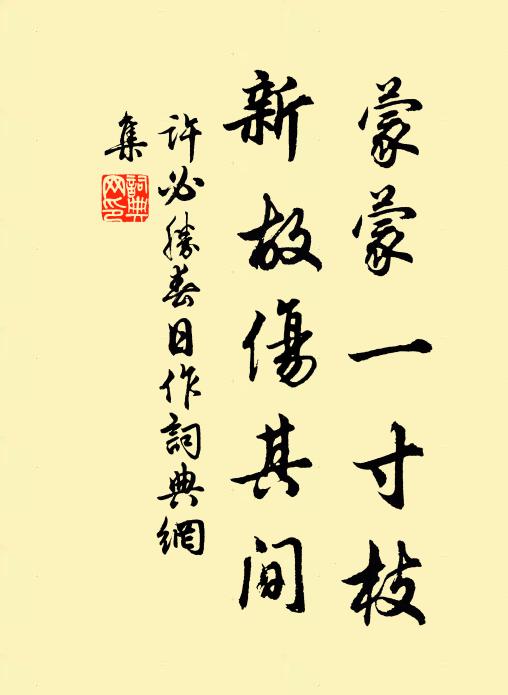 蒙蒙一寸枝
新故傷其間
許必勝春日作詞典網
集
詞典網印